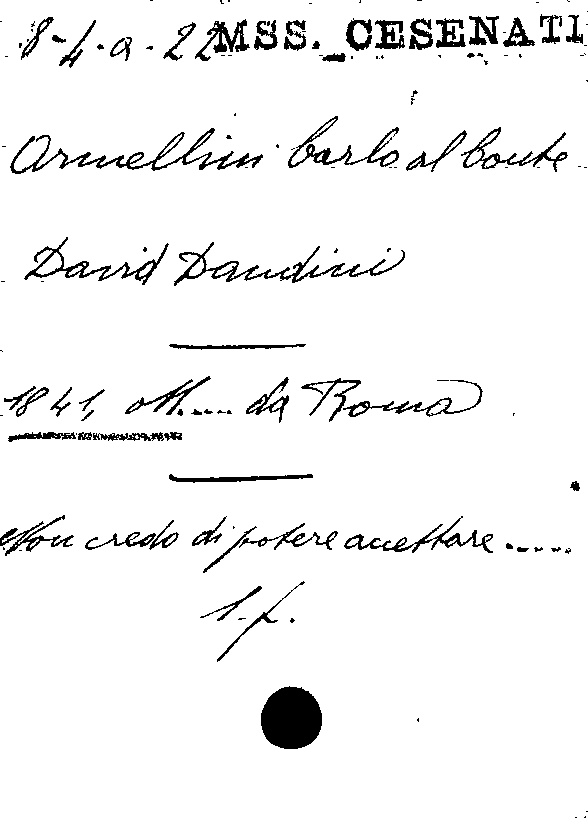 8-4-a-22 MSS. CESENATI
Armellini Carlo al Conte
David Dandini
1841, ott.... da Roma
Non credo di potere accettare .....
1. f.